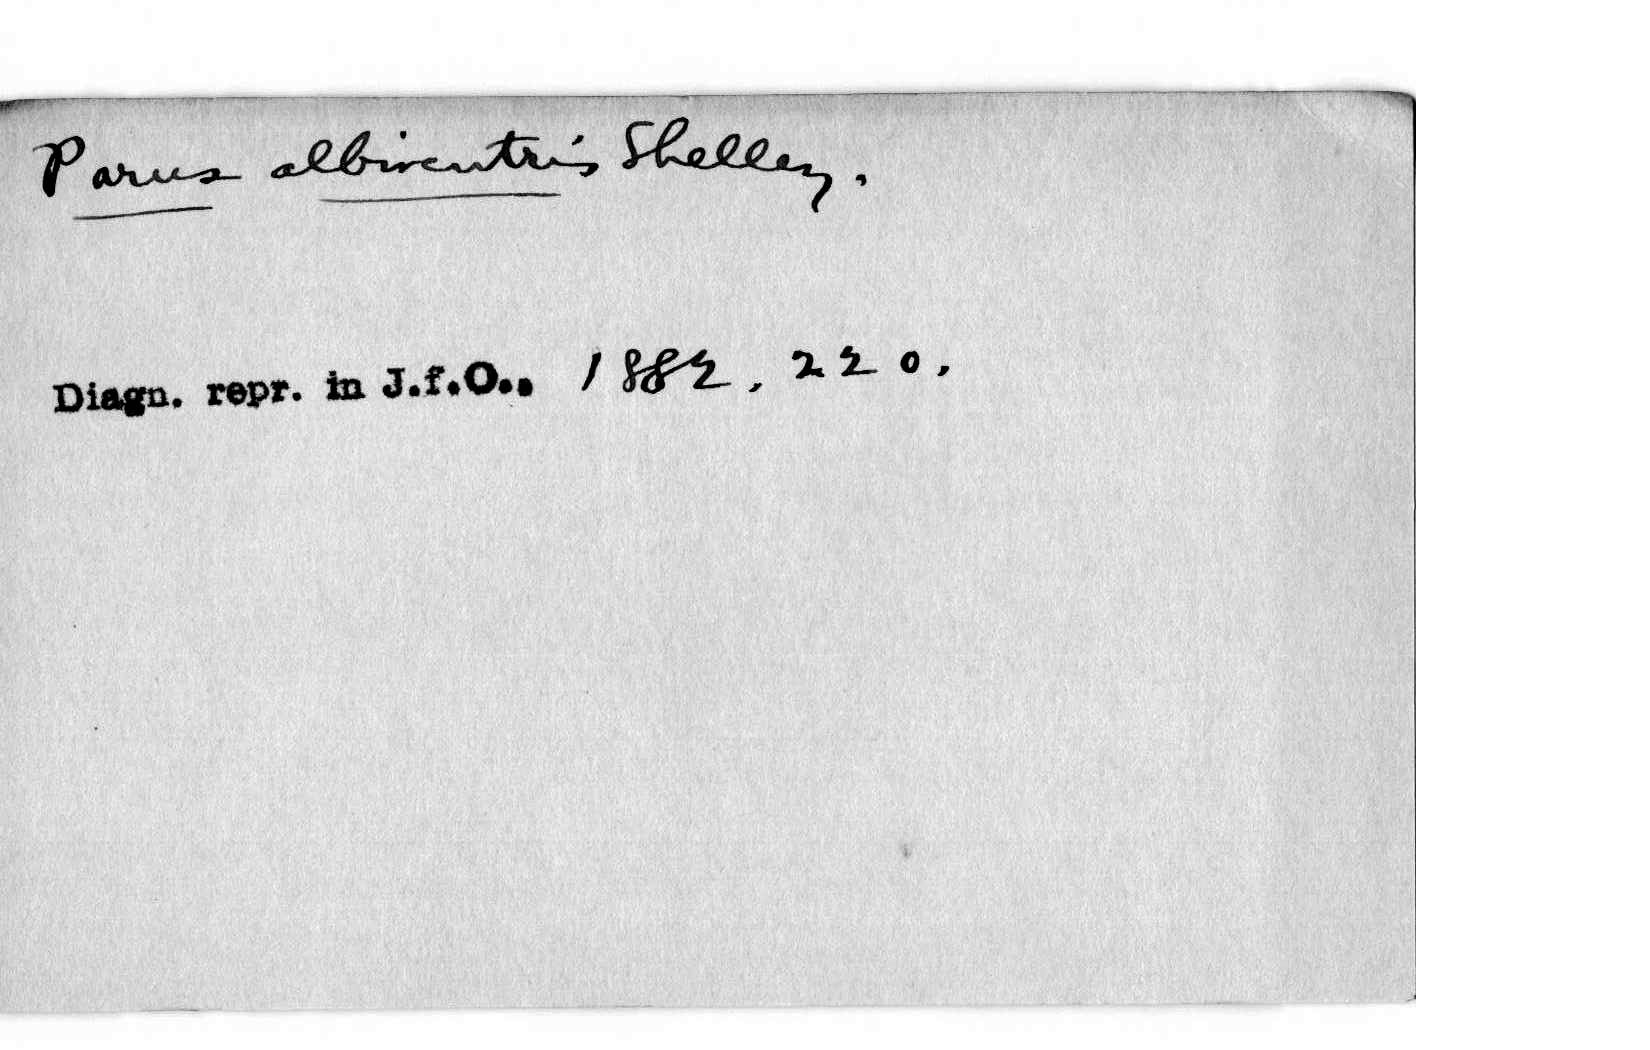 Parus albiventris Shelley.
Diagn. repr. in J.f.O., 1882, 220.